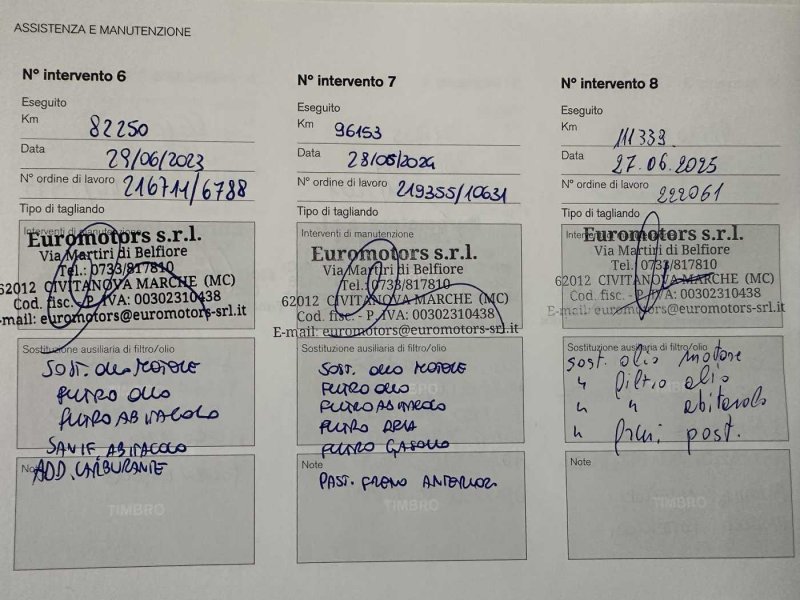 ASSISTENZA E MANUTENZIONE
N° intervento 6
Eseguito
Km 82250
Data 29/06/2023
N° ordine di lavoro 216711/6788
Tipo di tagliando
Interventi di manutenzione
Euromotors s.r.l.
Via Martiri di Belfiore
Tel.: 0733/817810
62012 CIVITANOVA MARCHE (MC)
Cod. fisc. - P. IVA: 00302310438
E-mail: euromotors@euromotors-srl.it
Sostituzione ausiliaria di filtro/olio
SOST. OLIO MOTORE
FILTRO OLIO
FILTRO ABITACOLO
SANIF. ABITACOLO
Note
ADD. CARBURANTE
TIMBRO
N° intervento 7
Eseguito
Km 96153
Data 28/05/2024
N° ordine di lavoro 219355/10631
Tipo di tagliando
Interventi di manutenzione
Euromotors s.r.l.
Via Martiri di Belfiore
Tel.: 0733/817810
62012 CIVITANOVA MARCHE (MC)
Cod. fisc. - P. IVA: 00302310438
E-mail: euromotors@euromotors-srl.it
Sostituzione ausiliaria di filtro/olio
SOST. OLIO MOTORE
FILTRO OLIO
FILTRO ABITACOLO
FILTRO ARIA
FILTRO GASOLIO
Note
PAST. FRENO ANTERIORI
TIMBRO
N° intervento 8
Eseguito
Km 111339
Data 27.06.2025
N° ordine di lavoro 222061
Tipo di tagliando
Interventi di manutenzione
Euromotors s.r.l.
Via Martiri di Belfiore
Tel.: 0733/817810
62012 CIVITANOVA MARCHE (MC)
Cod. fisc. - P. IVA: 00302310438
E-mail: euromotors@euromotors-srl.it
Sostituzione ausiliaria di filtro/olio
sost. olio motore
" filtro olio
" " abitacolo
" freni post.
Note
TIMBRO